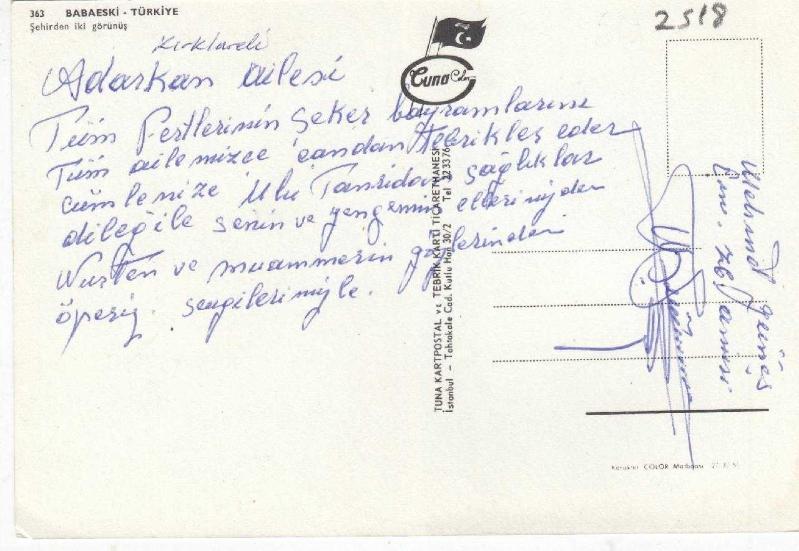 363 BABAESKİ - TÜRKİYE
Şehirden iki görünüş
2518
Kırklareli
Adarkan ailesi
Tüm Fertlerinin Şeker bayramlarını
Tüm ailemizce candan tebrikler eder
cümlenize Ulu Tanrıdan sağlıklar
dileğile senin ve yengemin ellerinizden
Nurten ve muammerin gözlerinden
öperiz. sevgilerimle.
Tuna Color
TUNA KARTPOSTAL ve TEBRİK KARTI TİCARETHANESİ
İstanbul - Tahtakale Cad. Kutlu Han 30/2 Tel: 223376
Mehmet Güneş
COLOR Matbaası